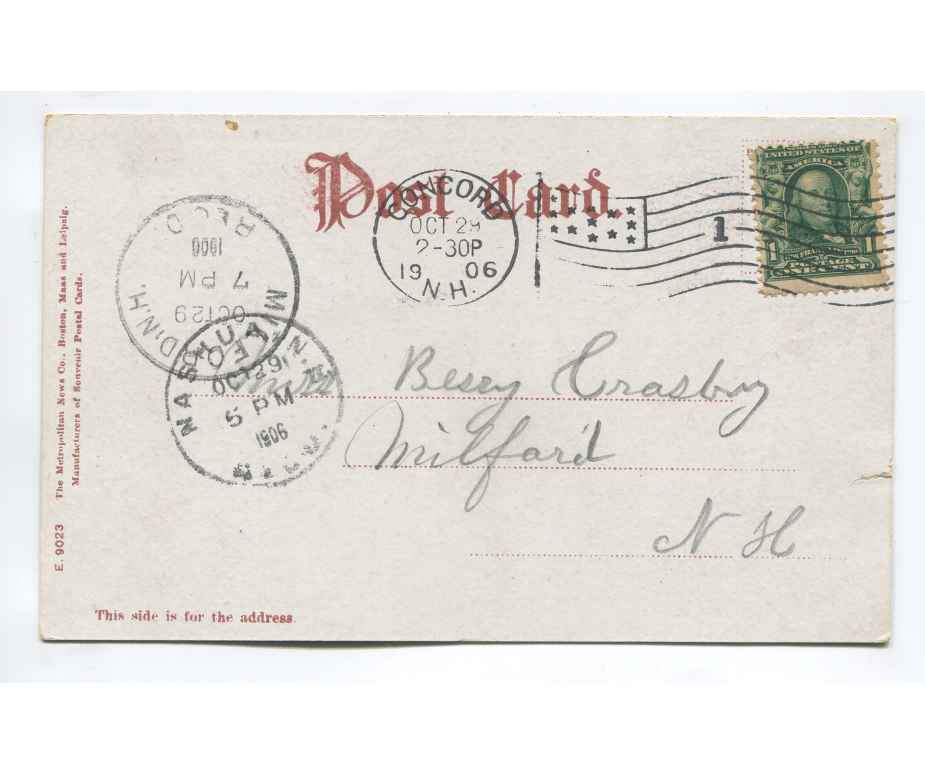 Post Card.
CONCORD
OCT 29
2-30P
19 06
N.H.
1
UNITED STATES OF
AMERICA
1 1
POSTAGE
ONE CENT
REC'D
1906
7 PM
OCT 29
MILFORD, N.H.
NASHUA, N.H.
OCT 29
5 PM
1906
Miss Bessy Crasby
Milford
N H
This side is for the address.
E. 9023 The Metropolitan News Co., Boston, Mass and Leipzig.
Manufacturers of Souvenir Postal Cards.